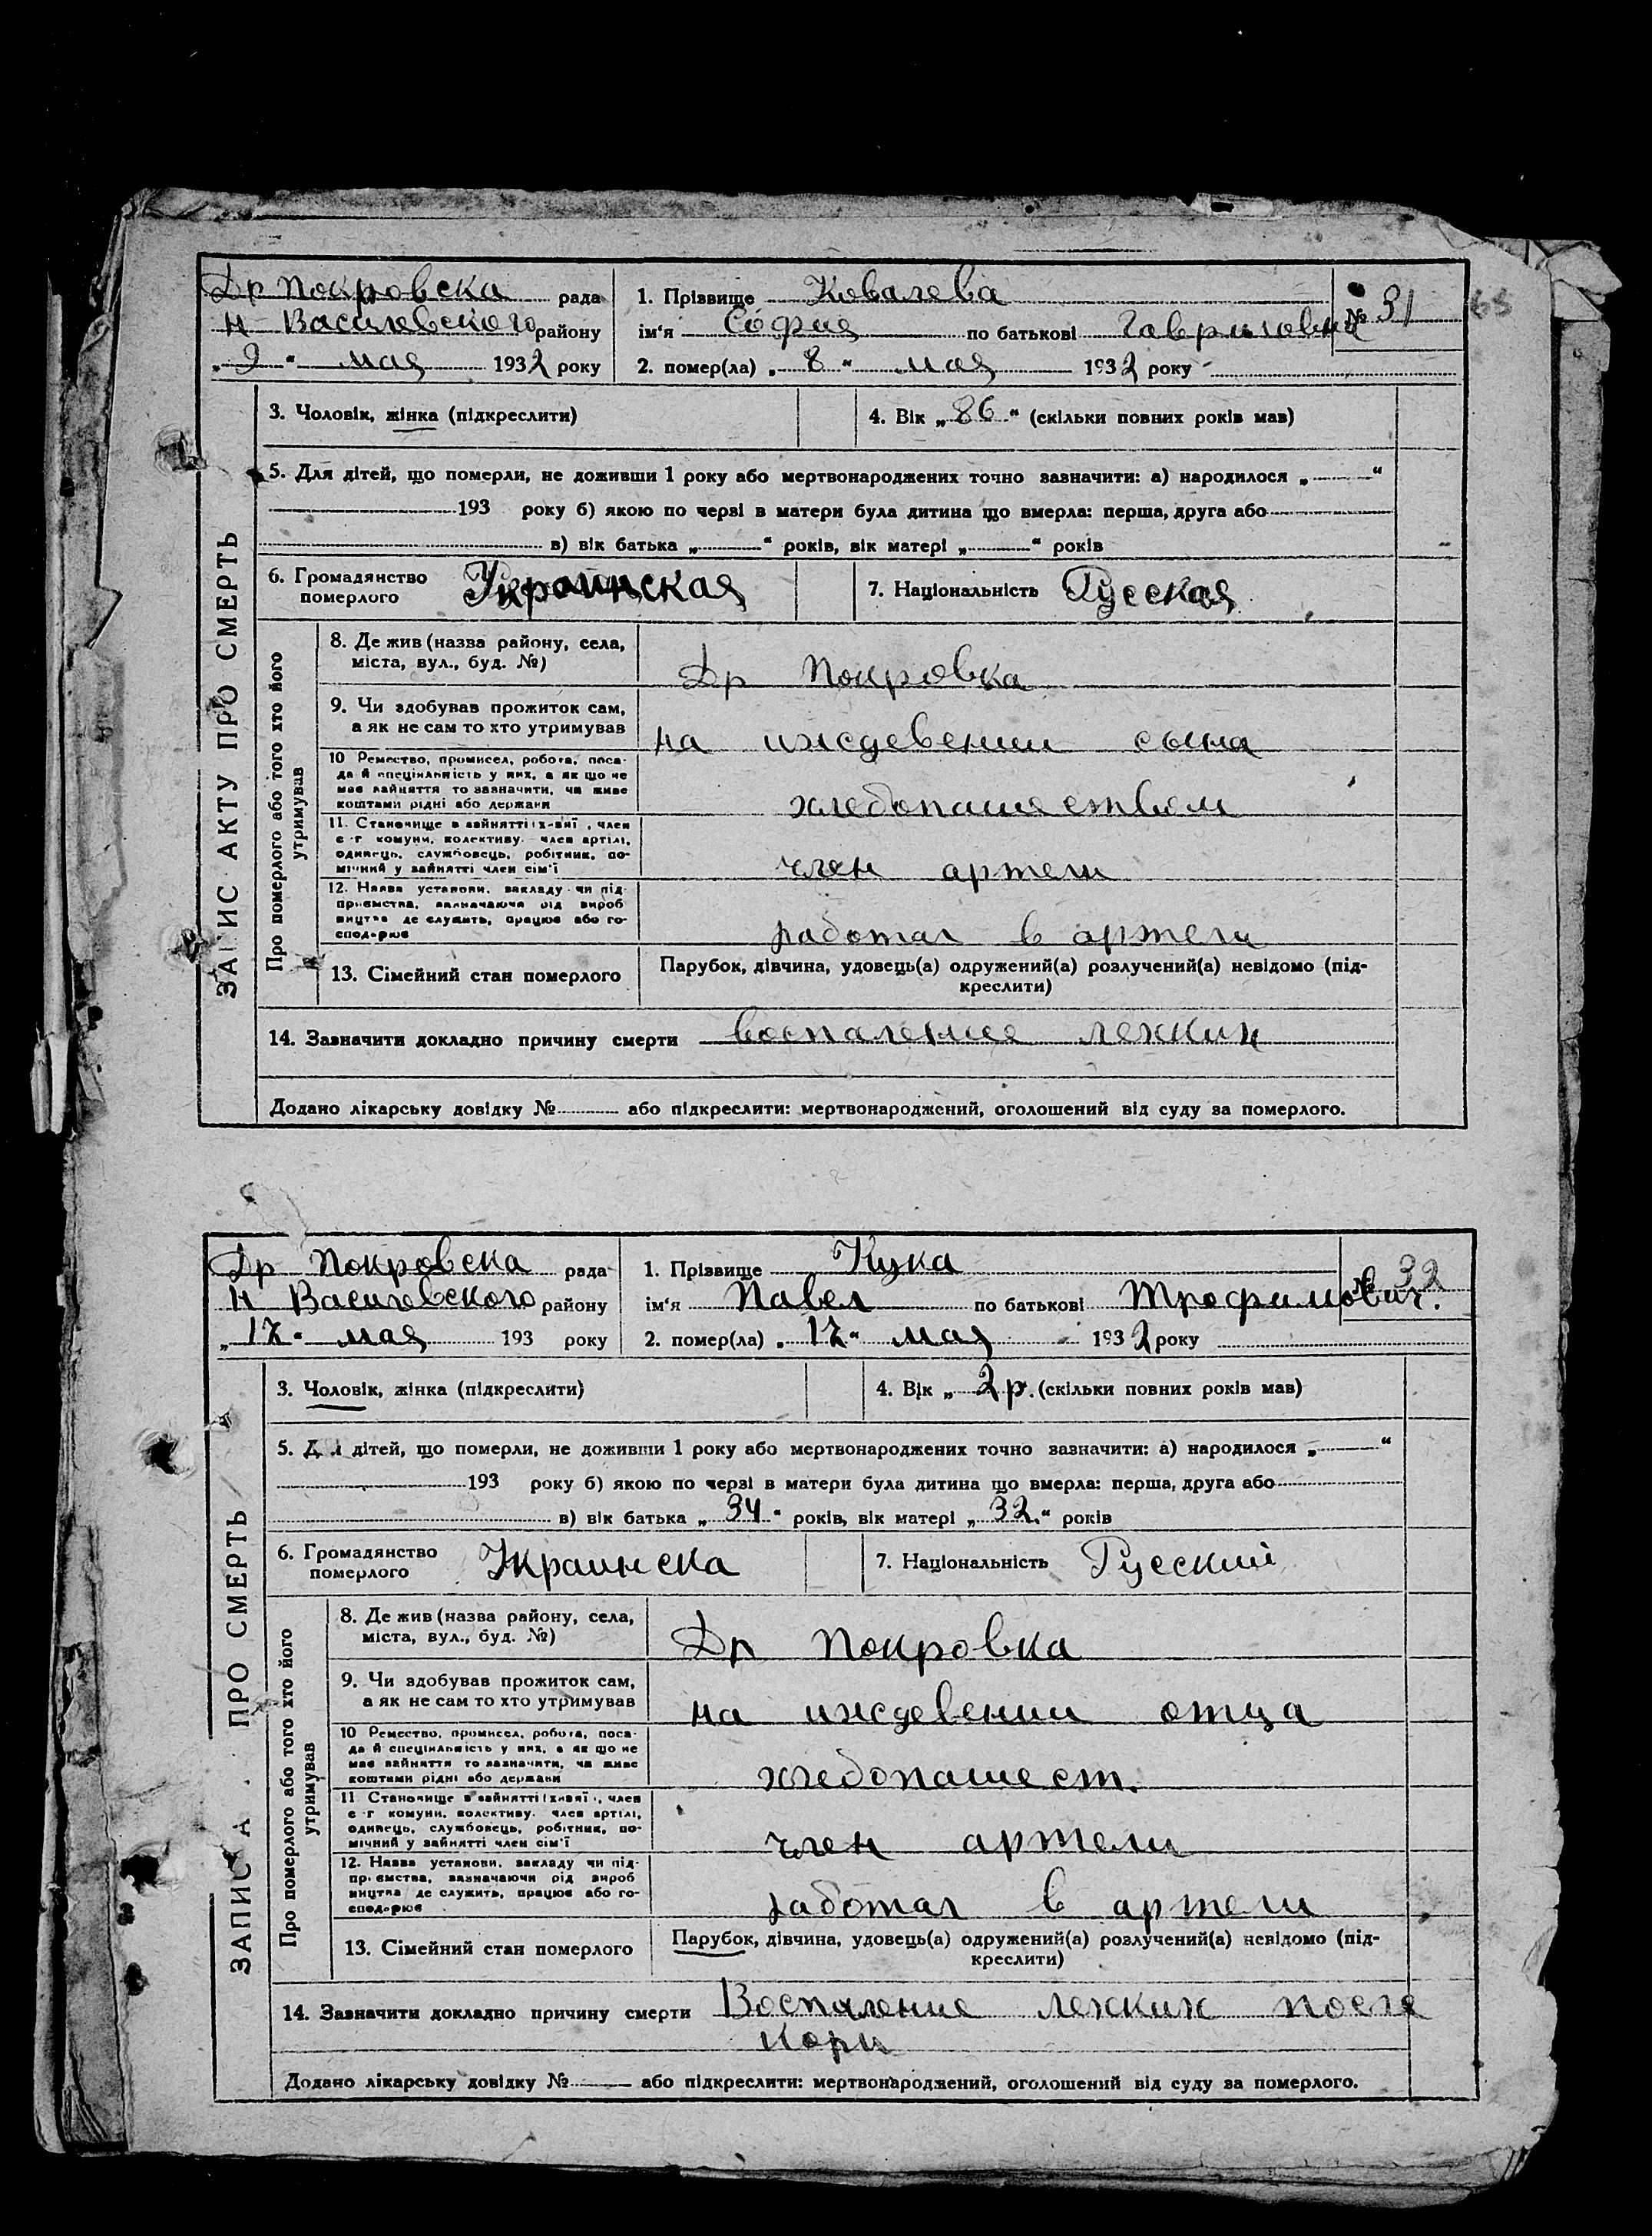 Др Покровска рада
Н Василевского району
„ 9 “ мая 1932 року
1. Прізвище Ковалева
ім‘я София по батькові Гавриловна
№ 31
65
2. помер(ла) „ 8 “ мая 1932 року
3. Чоловік, жінка (підкреслити)
4. Вік „ 86 “ (скільки повних років мав)
5. Для дітей, що померли, не доживши 1 року або мертвонароджених точно зазначити: а) народилося „ “
193 року б) якою по черзі в матери була дитина що вмерла: перша, друга або
в) вік батька „ “ років, вік матері „ “ років
6. Громадянство
померлого
Украинская
7. Національність Русская
ЗАПИС АКТУ ПРО СМЕРТЬ
Про померлого або того хто його
утримував
8. Де жив (назва району, села,
міста, вул., буд. №)
Др Покровка
9. Чи здобував прожиток сам,
а як не сам то хто утримував
на иждевении сына
10 Ремество, промисел, робота, поса-
да й спеціяльність у них, а як що не
має зайняття то зазначити, чи живе
коштами рідні або держави
хлебопашеством
11. Становище в зайнятті
е -г комуни, колективу. член артілі,
одинець, службовець, робітник, по-
мічний у зайнятті член сім‘ї
член артели
12. Назва установи, закладу чи під-
приємства, зазначаючи рід вироб
ництва де служить, працює або го-
сподарює
работал в артели
13. Сімейний стан померлого
Парубок, дівчина, удовець(а) одружений(а) розлучений(а) невідомо (під-
креслити)
14. Зазначити докладно причину смерти воспаление лехких
Додано лікарську довідку № або підкреслити: мертвонароджений, оголошений від суду за померлого.
Др Покровска рада
Н Василевского району
„ 17 “ мая 193 року
1. Прізвище Кука
ім‘я Павел по батькові Трофимович.
№ 32
2. помер(ла) „ 17 “ мая 1932 року
3. Чоловік, жінка (підкреслити)
4. Вік „ 2 р. (скільки повних років мав)
5. Для дітей, що померли, не доживши 1 року або мертвонароджених точно зазначити: а) народилося „ “
193 року б) якою по черзі в матери була дитина що вмерла: перша, друга або
в) вік батька „ 34 “ років, вік матері „ 32. “ років
6. Громадянство
померлого
Украинска
7. Національність Русский
ЗАПИС А ПРО СМЕРТЬ
Про померлого або того хто його
утримував
8. Де жив (назва району, села,
міста, вул., буд. №)
Др Покровка
9. Чи здобував прожиток сам,
а як не сам то хто утримував
на иждевении отца
10 Ремество, промисел, робота, поса-
да й спеціяльність у них, а як що не
має зайняття то зазначити, чи живе
коштами рідні або держави
хлебопашест.
11 Становище в зайнятті
е -г комуни, колективу. член артілі,
одинець, службовець, робітник, по-
мічний у зайнятті член сім‘ї
член артели
12. Назва установи, закладу чи під-
приємства, зазначаючи рід вироб
ництва де служить, працює або го-
сподарює
работал в артели
13. Сімейний стан померлого
Парубок, дівчина, удовець(а) одружений(а) розлучений(а) невідомо (під-
креслити)
14. Зазначити докладно причину смерти Воспаление лехких после
кори
Додано лікарську довідку № або підкреслити: мертвонароджений, оголошений від суду за померлого.